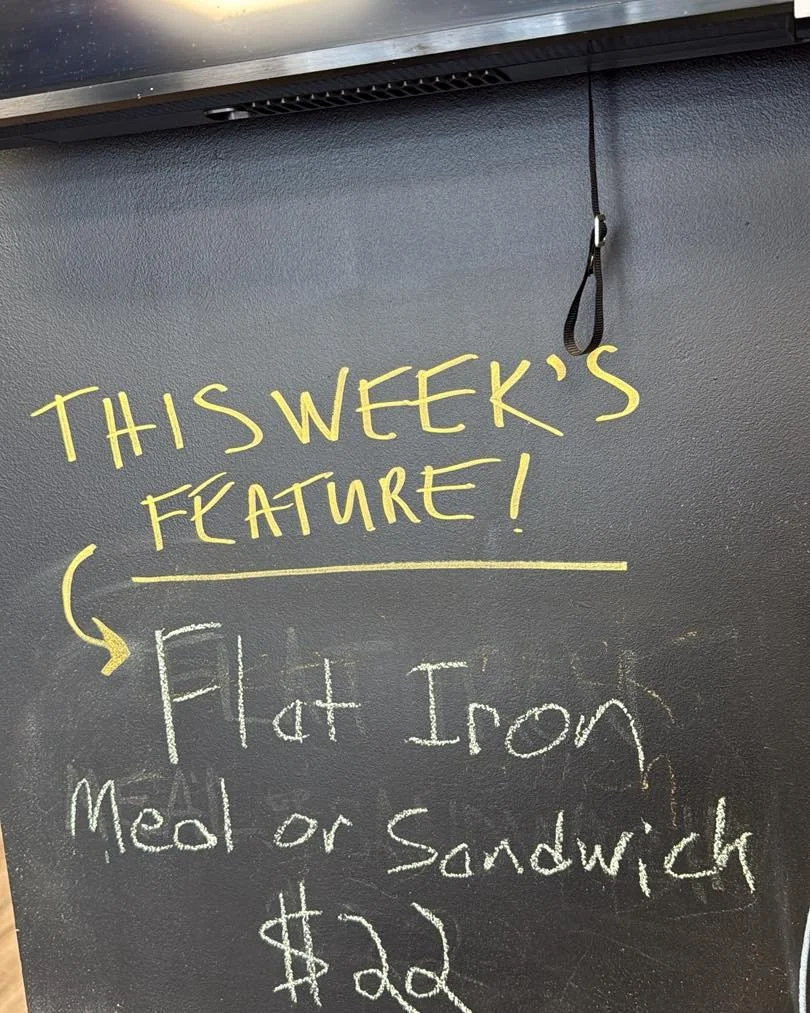 THIS WEEK'S
FEATURE!
Flat Iron
Meal or Sandwich
$22